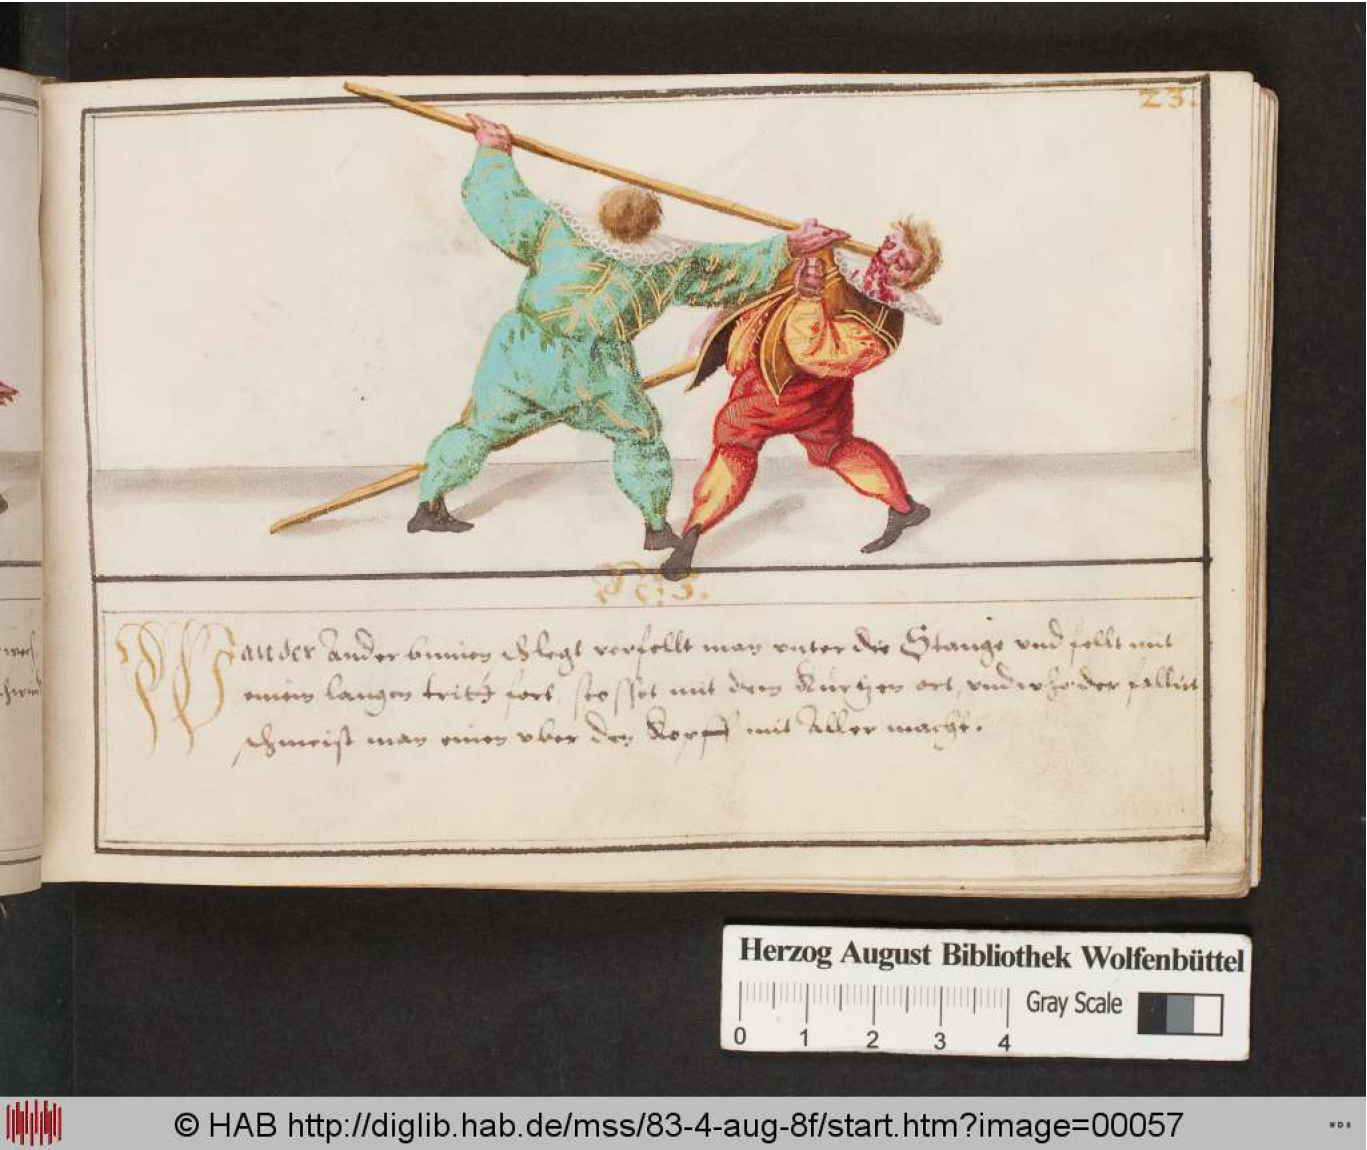 23.
N: 3.
Wan der Ander binnen schlegt verfellt man unter die Stange und fellt mit
einem langen tritt fort, stosset mit dem Kurtzen ort, und der
schmeist man einen uber den Kopff mit Aller macht.
Herzog August Bibliothek Wolfenbüttel
Gray Scale
0 1 2 3 4
© HAB http://diglib.hab.de/mss/83-4-aug-8f/start.htm?image=00057